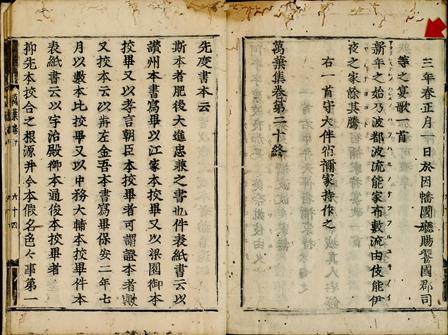 三年春正月一日於因幡國廳賜饗國郡司
等之宴歌一首
新年之始乃波都波流能家布敷流由伎能伊
夜之家餘其騰
右一首守大伴宿禰家持作之
萬葉集卷第二十終
先度書本云
斯本者肥後大進忠兼之書也件表紙書云以
讚州本書寫畢以江家本校畢又以梁園御本
校畢又以孝言朝臣本校畢者可謂證本者歟
又校本云以左金吾本書寫畢保安二年七
月以數本比校畢又以中務大輔本校畢件本
表紙書云以宇治殿御本通俊本校畢者
抑先本校合之根源并今本假名色々事第一
六十四